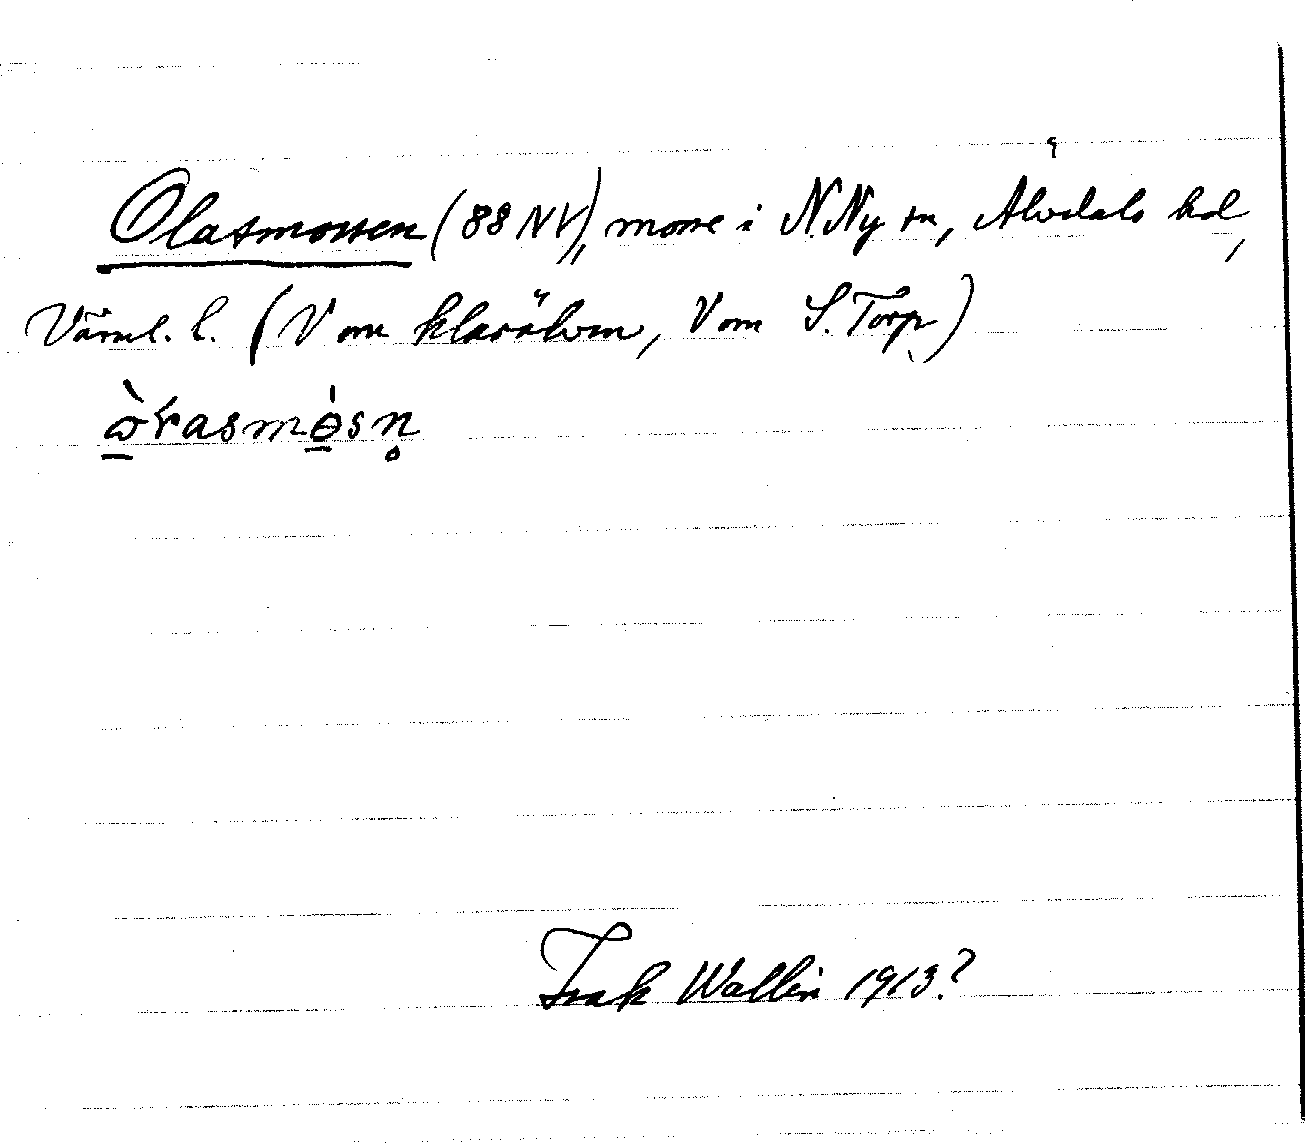 Olasmossen (88 NV), mosse i N. Ny sn, Älvdals hd,
Värml. l. (V om Klarälven, V om S. Torp)
Isak Wallin 1913?